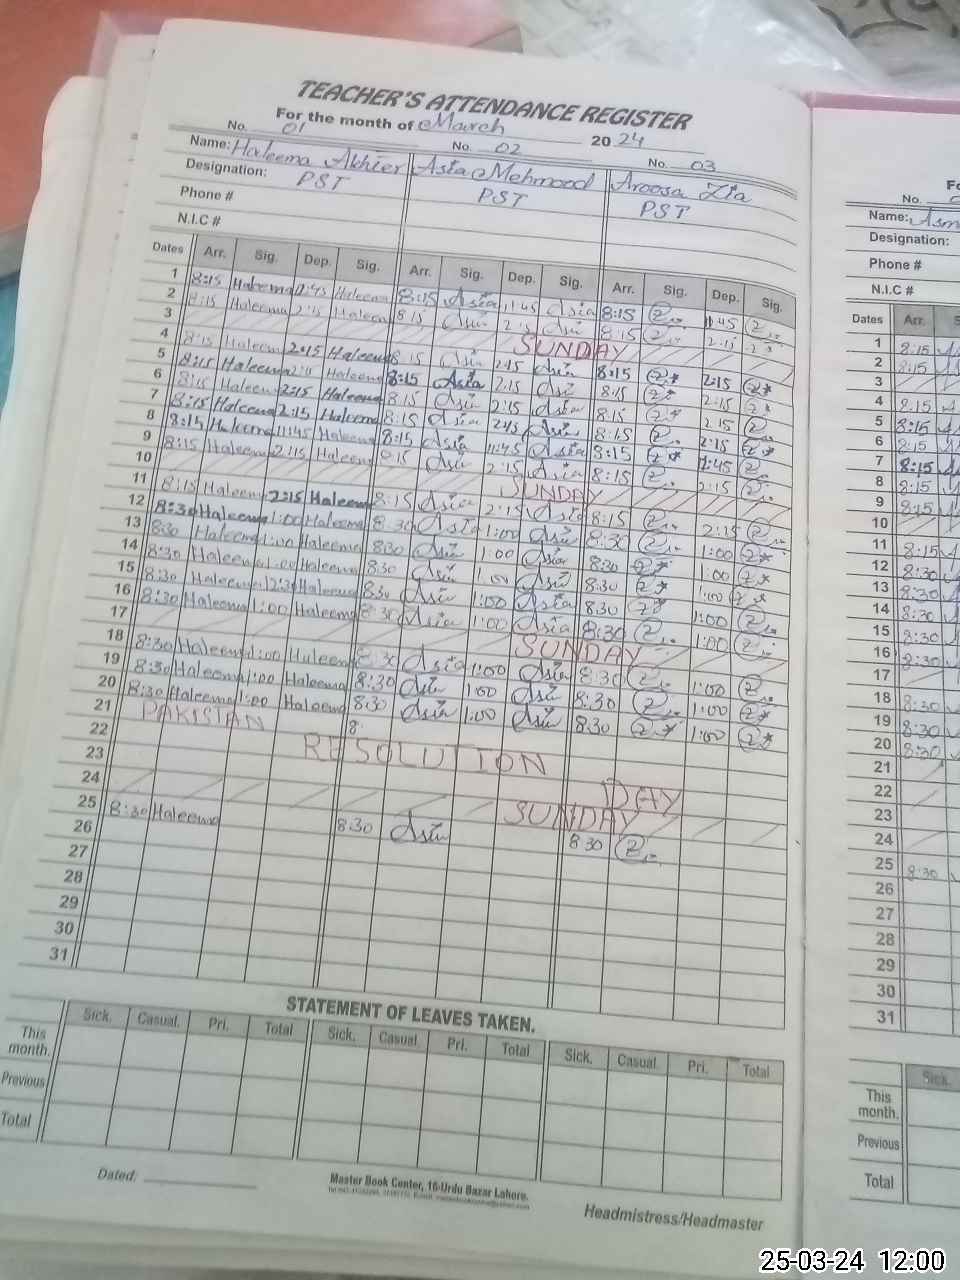 TEACHER'S ATTENDANCE REGISTER
For the month of March 2024
No. 01 No. 02 No. 03
Name: Haleema Akhter Asia Mehmood Aroosa Zia
Designation: PST PST PST
Phone #
N.I.C #
Dates Arr. Sig. Dep. Sig. Arr. Sig. Dep. Sig. Arr. Sig. Dep. Sig.
1 8:15 Haleema 11:45 Haleema 8:15 Asia 11:45 Asia 8:15 11:45
2 8:15 Haleema 2:15 Haleema 8:15 Asia 2:15 Asia 8:15 2:15
3 SUNDAY
4 8:15 Haleema 2:15 Haleema 8:15 Asia 2:15 Asia 8:15 2:15
5 8:15 Haleema 2:15 Haleema 8:15 Asia 2:15 Asia 8:15 2:15
6 8:15 Haleema 2:15 Haleema 8:15 Asia 2:15 Asia 8:15 2:15
7 8:15 Haleema 2:15 Haleema 8:15 Asia 2:15 Asia 8:15 2:15
8 8:15 Haleema 11:45 Haleema 8:15 Asia 11:45 Asia 8:15 11:45
9 8:15 Haleema 2:15 Haleema 8:15 Asia 2:15 Asia 8:15 2:15
10 SUNDAY
11 8:15 Haleema 2:15 Haleema 8:15 Asia 2:15 Asia 8:15 2:15
12 8:30 Haleema 1:00 Haleema 8:30 Asia 1:00 Asia 8:30 1:00
13 8:30 Haleema 1:00 Haleema 8:30 Asia 1:00 Asia 8:30 1:00
14 8:30 Haleema 1:00 Haleema 8:30 Asia 1:00 Asia 8:30 1:00
15 8:30 Haleema 12:30 Haleema 8:30 Asia 1:00 Asia 8:30 1:00
16 8:30 Haleema 1:00 Haleema 8:30 Asia 1:00 Asia 8:30 1:00
17 SUNDAY
18 8:30 Haleema 1:00 Haleema 8:30 Asia 1:00 Asia 8:30 1:00
19 8:30 Haleema 1:00 Haleema 8:30 Asia 1:00 Asia 8:30 1:00
20 8:30 Haleema 1:00 Haleema 8:30 Asia 1:00 Asia 8:30 1:00
21 PAKISTAN 8
22 RESOLUTION
23 DAY
24 SUNDAY
25 8:30 Haleema 8:30 Asia 8:30
26
27
28
29
30
31
STATEMENT OF LEAVES TAKEN.
Sick. Casual. Pri. Total Sick. Casual. Pri. Total Sick. Casual. Pri. Total
This month.
Previous
Total
Dated:
Master Book Center, 16-Urdu Bazar Lahore.
Headmistress/Headmaster
No.
Name:
Designation:
Phone #
N.I.C #
Dates Arr.
1 8:15
2 8:15
3
4 8:15
5 8:15
6 8:15
7 8:15
8 8:15
9 8:15
10
11 8:15
12 8:30
13 8:30
14 8:30
15 8:30
16
17
18 8:30
19 8:30
20 8:30
21
22
23
24
25 8:30
26
27
28
29
30
31
Sick.
This month.
Previous
Total
25-03-24 12:00